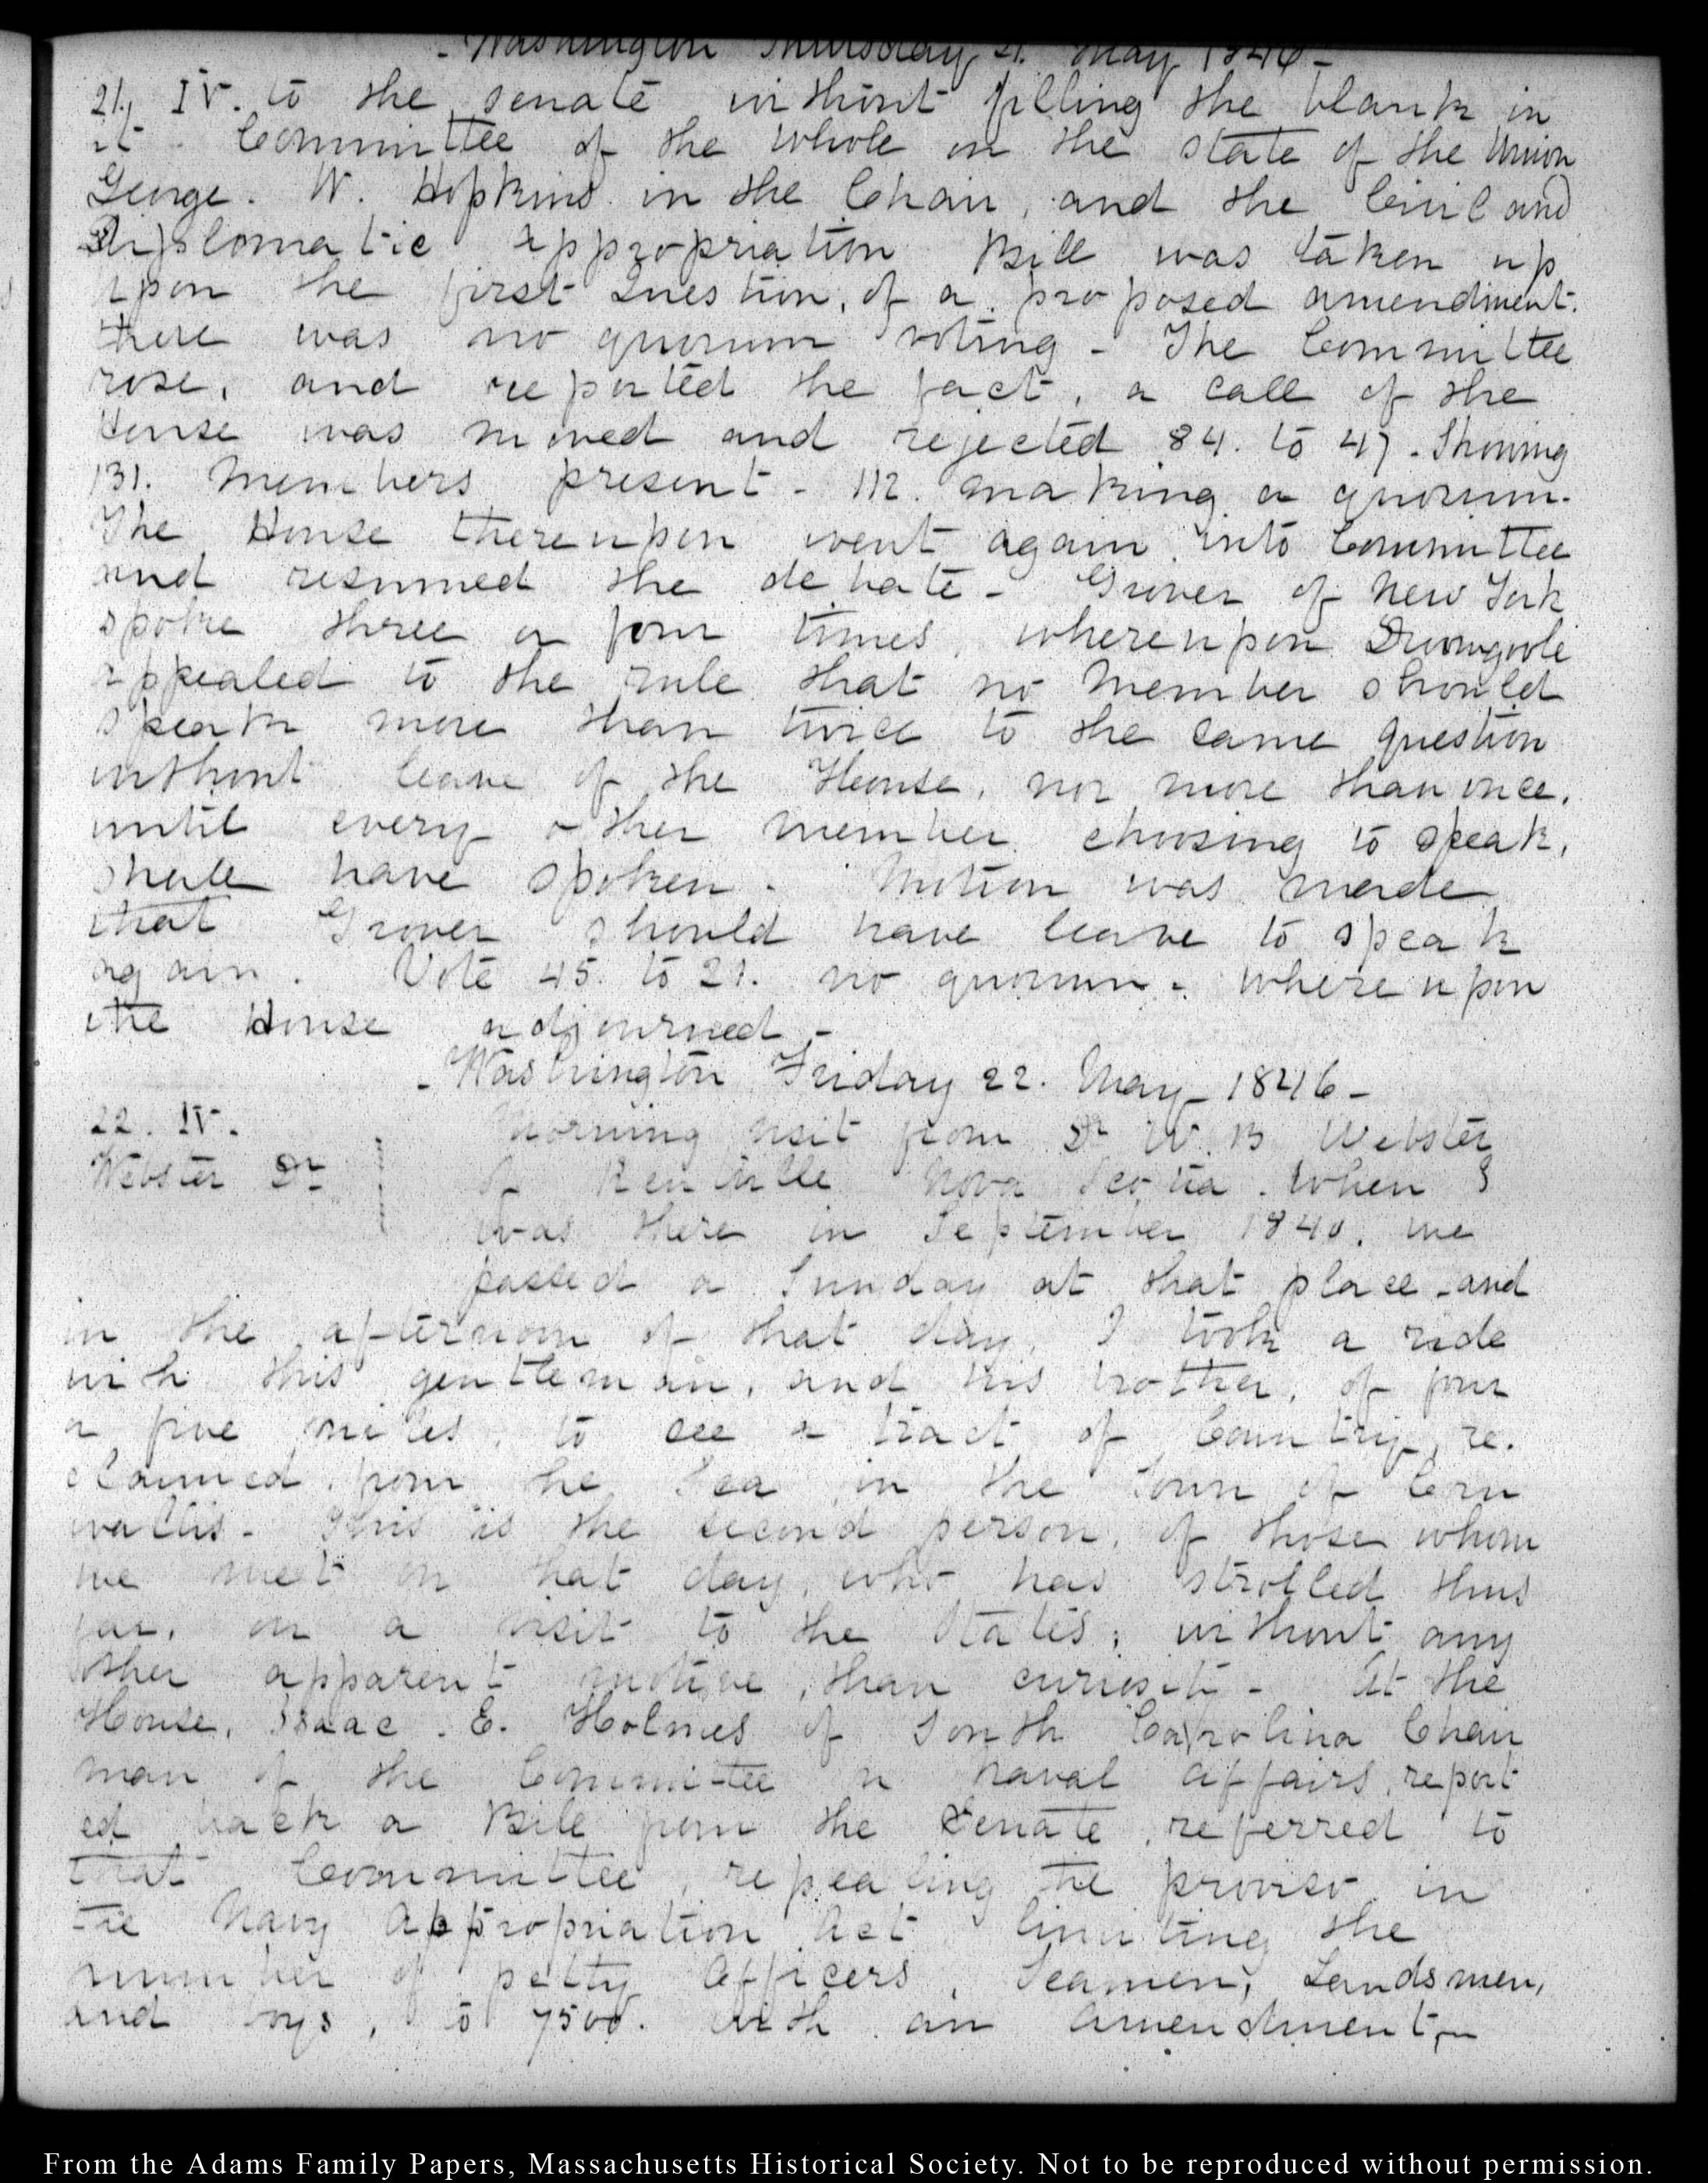 - Washington Thursday 21. May 1846 -
21. IV. to the senate without filling the blank in
it - Committee of the whole on the state of the Union
George. W. Hopkins in the Chair, and the Civil and
Diplomatic Appropriation Bill was taken up
upon the first Question, of a proposed amendment.
there was no quorum voting - The Committee
rose, and reported the fact, a call of the
House was moved and rejected 84. to 47 - Showing
131. Members present - 112. making a quorum.
The House thereupon went again into Committee
and resumed the debate - Grover of New York
spoke three or four times, whereupon Dromgoole
appealed to the rule that no Member should
speak more than twice to the same question
without leave of the House, nor more than once,
until every other member choosing to speak,
shall have spoken - Motion was made
that Grover should have leave to speak
again. Vote 45. to 21. no quorum - whereupon
the House adjourned -
- Washington Friday 22. May 1846 -
22. IV. Morning visit from Dr W. B Webster
Webster Dr of Kentville Nova Scotia. When I
was there in September 1840. we
passed a Sunday at that place - and
in the afternoon of that day, I took a ride
with this gentleman, and his brother, of four
or five miles, to see a tract of Country, re-
claimed from the Sea in the Town of Corn
wallis - This is the second person, of those whom
we met on that day, who has strolled thus
far, on a visit to the States; without any
other apparent motive, than curiosity - At the
House, Isaac. E. Holmes of South Carolina Chair
man of the Committee on Naval Affairs, report
ed back a Bill from the Senate, referred to
that Committee, repealing the proviso in
the Navy Appropriation Act limiting the
number of petty Officers, Seamen, Landsmen,
and boys, to 7500. with an Amendment,
From the Adams Family Papers, Massachusetts Historical Society. Not to be reproduced without permission.